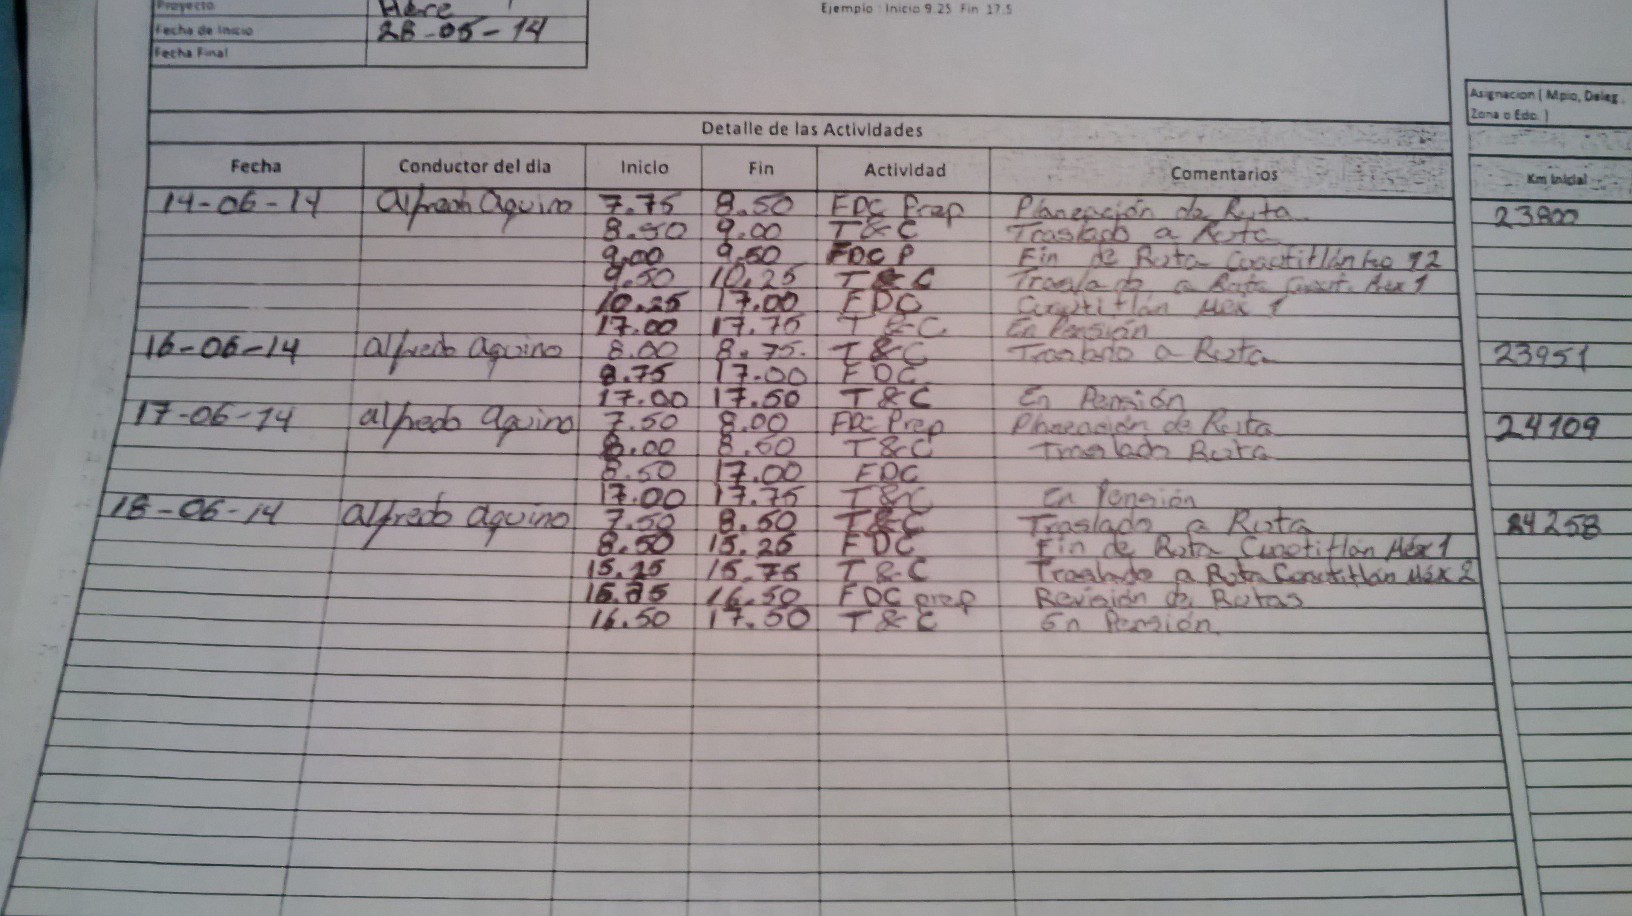 Proyecto Here
Ejemplo : Inicio 9.25 Fin 17.5
Fecha de Inicio 28-05-14
Fecha Final
Asignacion ( Mpio, Deleg,
Zona o Edo. )
Detalle de las Actividades
Fecha Conductor del dia Inicio Fin Actividad Comentarios Km Inicial
14-06-14 Alfredo Aquino 7.75 8.50 FDC Prep Planeación de Ruta 23800
8.50 9.00 T&C Traslado a Ruta
9.00 9.50 FDC P Fin de Ruta Cuautitlán 12
9.50 10.25 T&C Traslado a Ruta Cuaut. Mex 1
10.25 17.00 FDC Cuautitlán Mex 1
17.00 17.75 T&C En Pensión
16-06-14 alfredo aquino 8.00 8.75. T&C Traslado a Ruta 23951
8.75 17.00 FDC
17.00 17.50 T&C En Pensión
17-06-14 alfredo aquino 7.50 8.00 FDC Prep Planeación de Ruta 24109
8.00 8.50 T&C Traslado Ruta
8.50 17.00 FDC
17.00 17.75 T&C En Pensión
18-06-14 alfredo aquino 7.50 8.50 T&C Traslado a Ruta 24258
8.50 15.25 FDC Fin de Ruta Cuautitlan Méx 1
15.25 15.75 T&C Traslado a Ruta Cuautitlán Méx 2
15.75 16.50 FDC prep Revisión de Rutas
16.50 17.50 T&C En Pensión